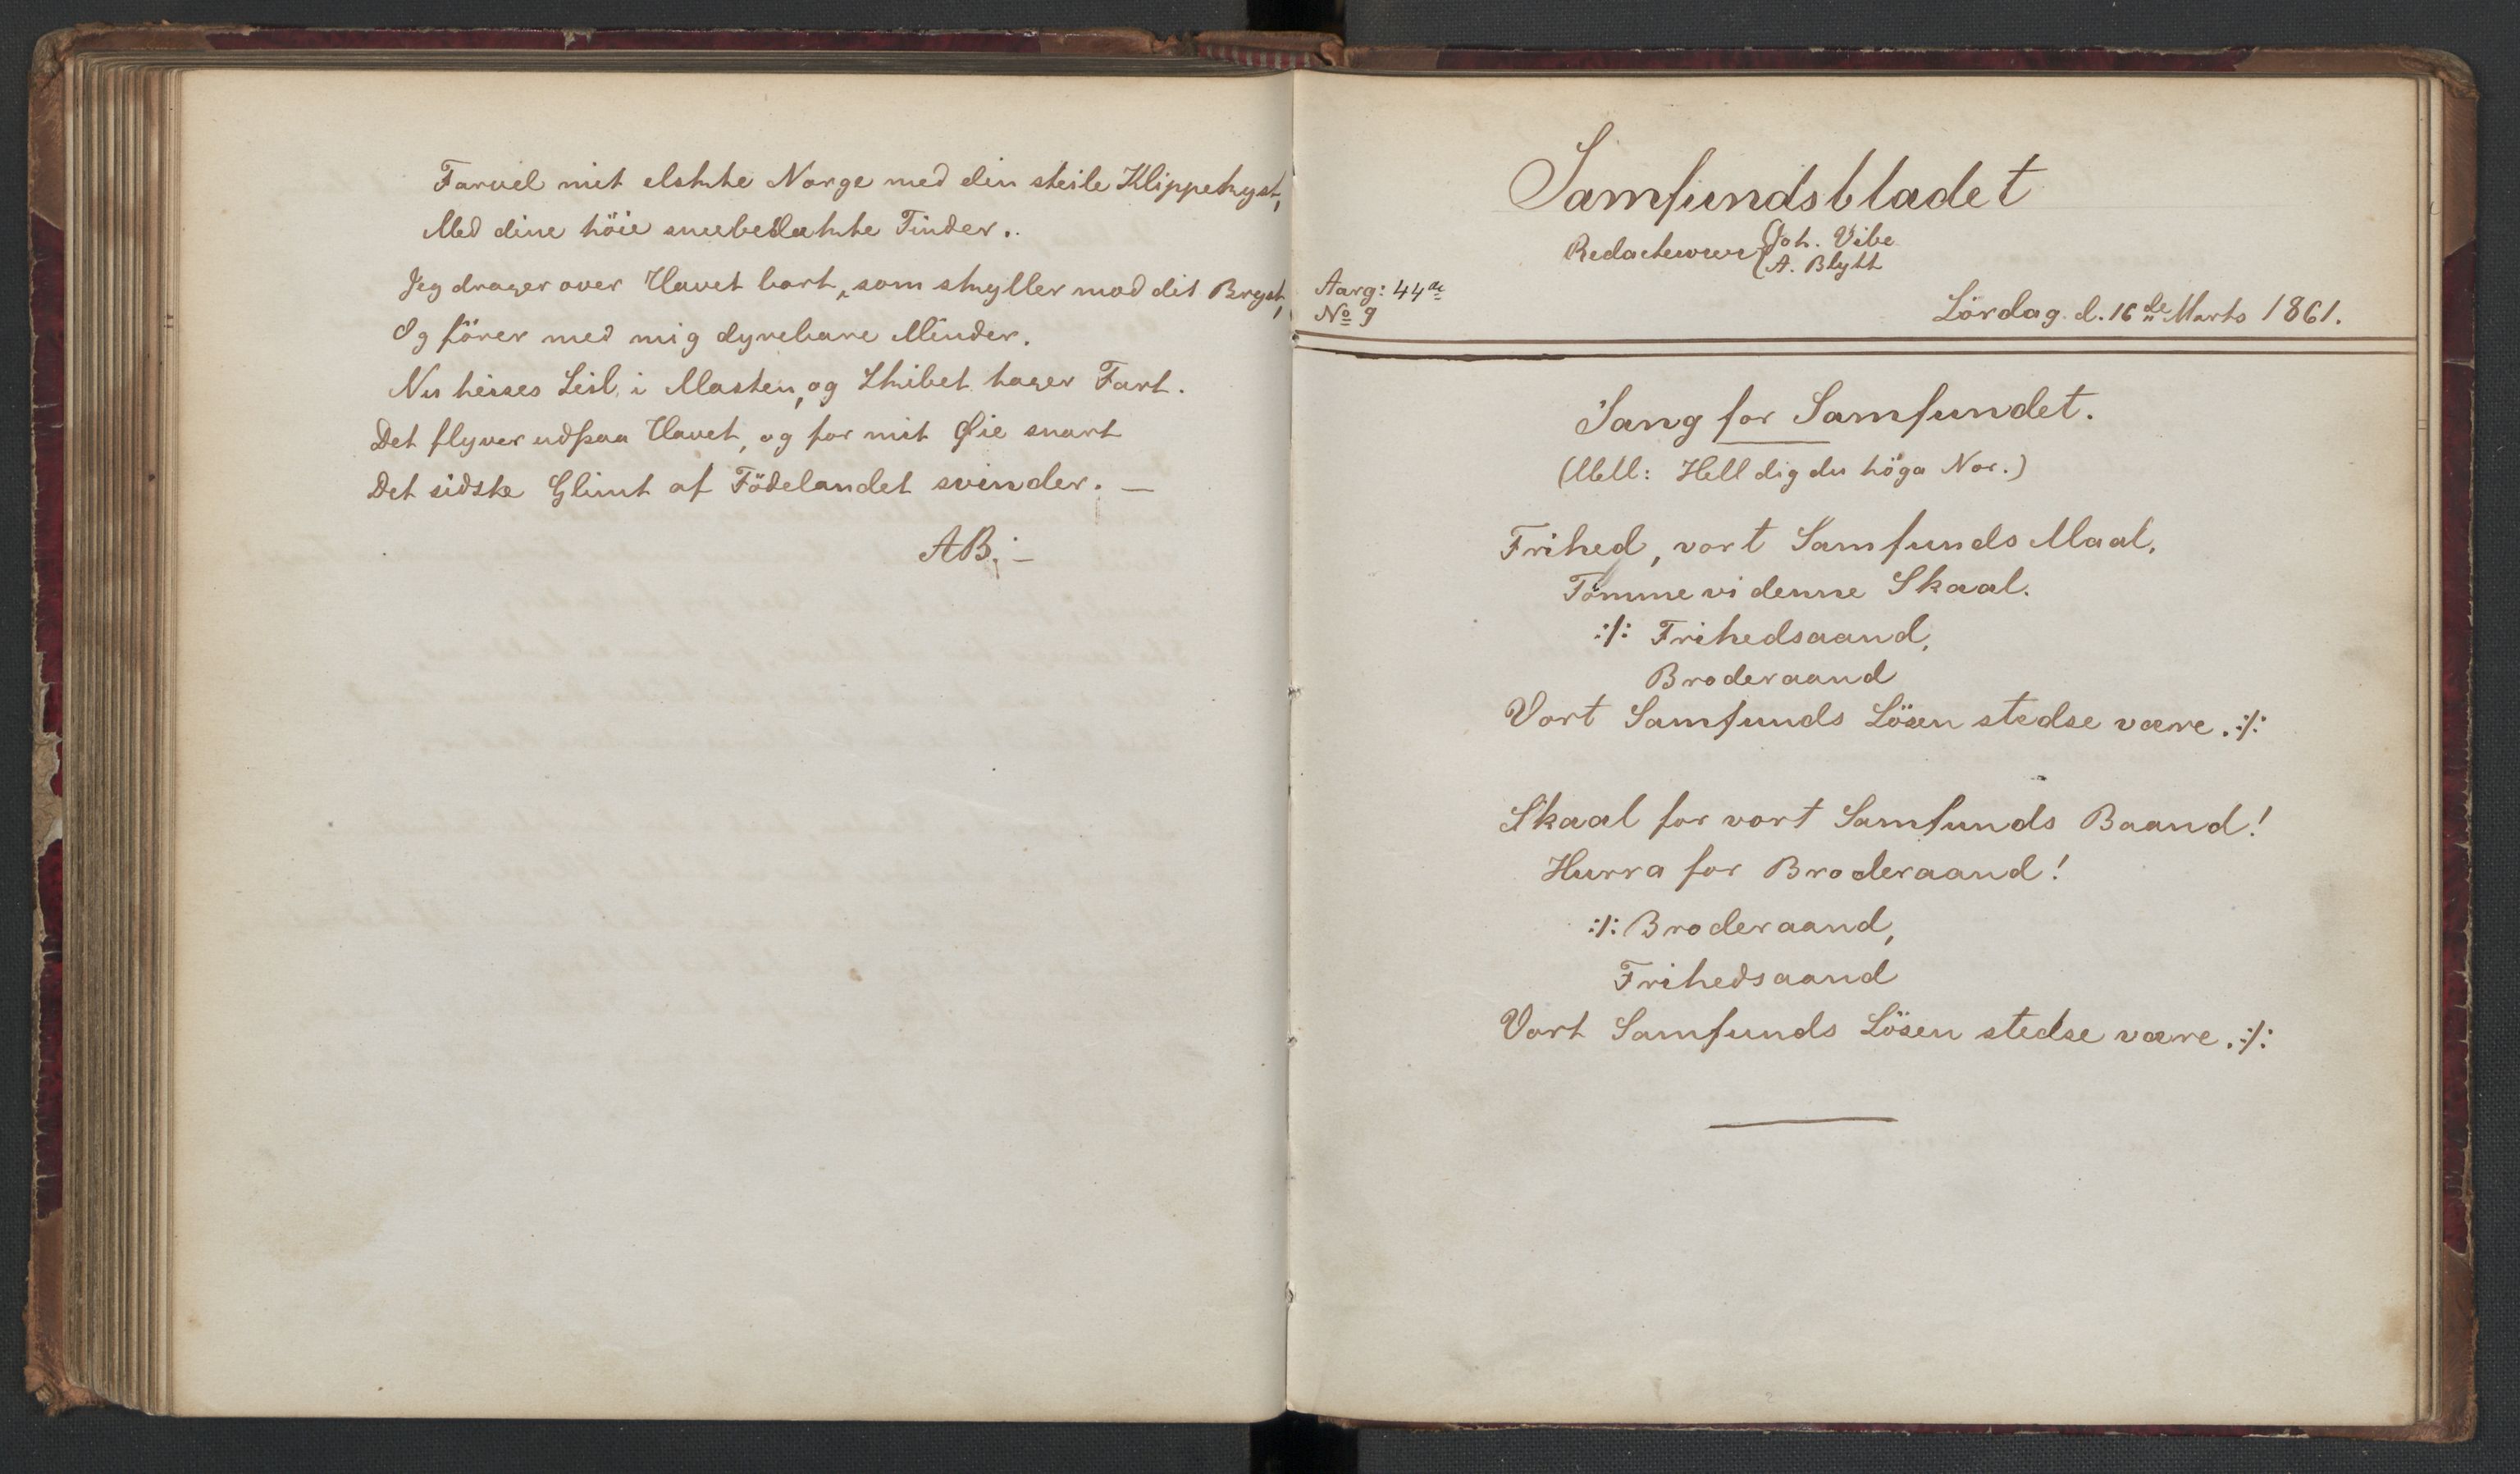 Farvel mit elskte Norge med din steile Klippekyst,
Med dine höie sneebedækkte Tinder.
Jeg drager over Havet bort, som skyller mod dit Bryst,
Og förer med mig dyrebare Minder.
Nu heises Seil i Masten, og Skibet tager Fart.
Det flyver ud paa Havet, og for mit Øie snart
Det sidste Glimt af Födelandet svinder. —
AB. —
Samfundsbladet
Redacteurer { Joh. Vibe
A. Blytt
Aarg: 44de
No 9
Lördag d. 16de Marts 1861.
Sang for Samfundet.
(Mell: Hell dig du höga Nor.)
Frihed, vort Samfunds Maal,
Tömme vi denne Skaal.
:/: Frihedsaand,
Broderaand
Vort Samfunds Lösen stedse være. :/:
Skaal for vort Samfunds Baand!
Hurra for Broderaand!
:/: Broderaand,
Frihedsaand
Vort Samfunds Lösen stedse være. :/: